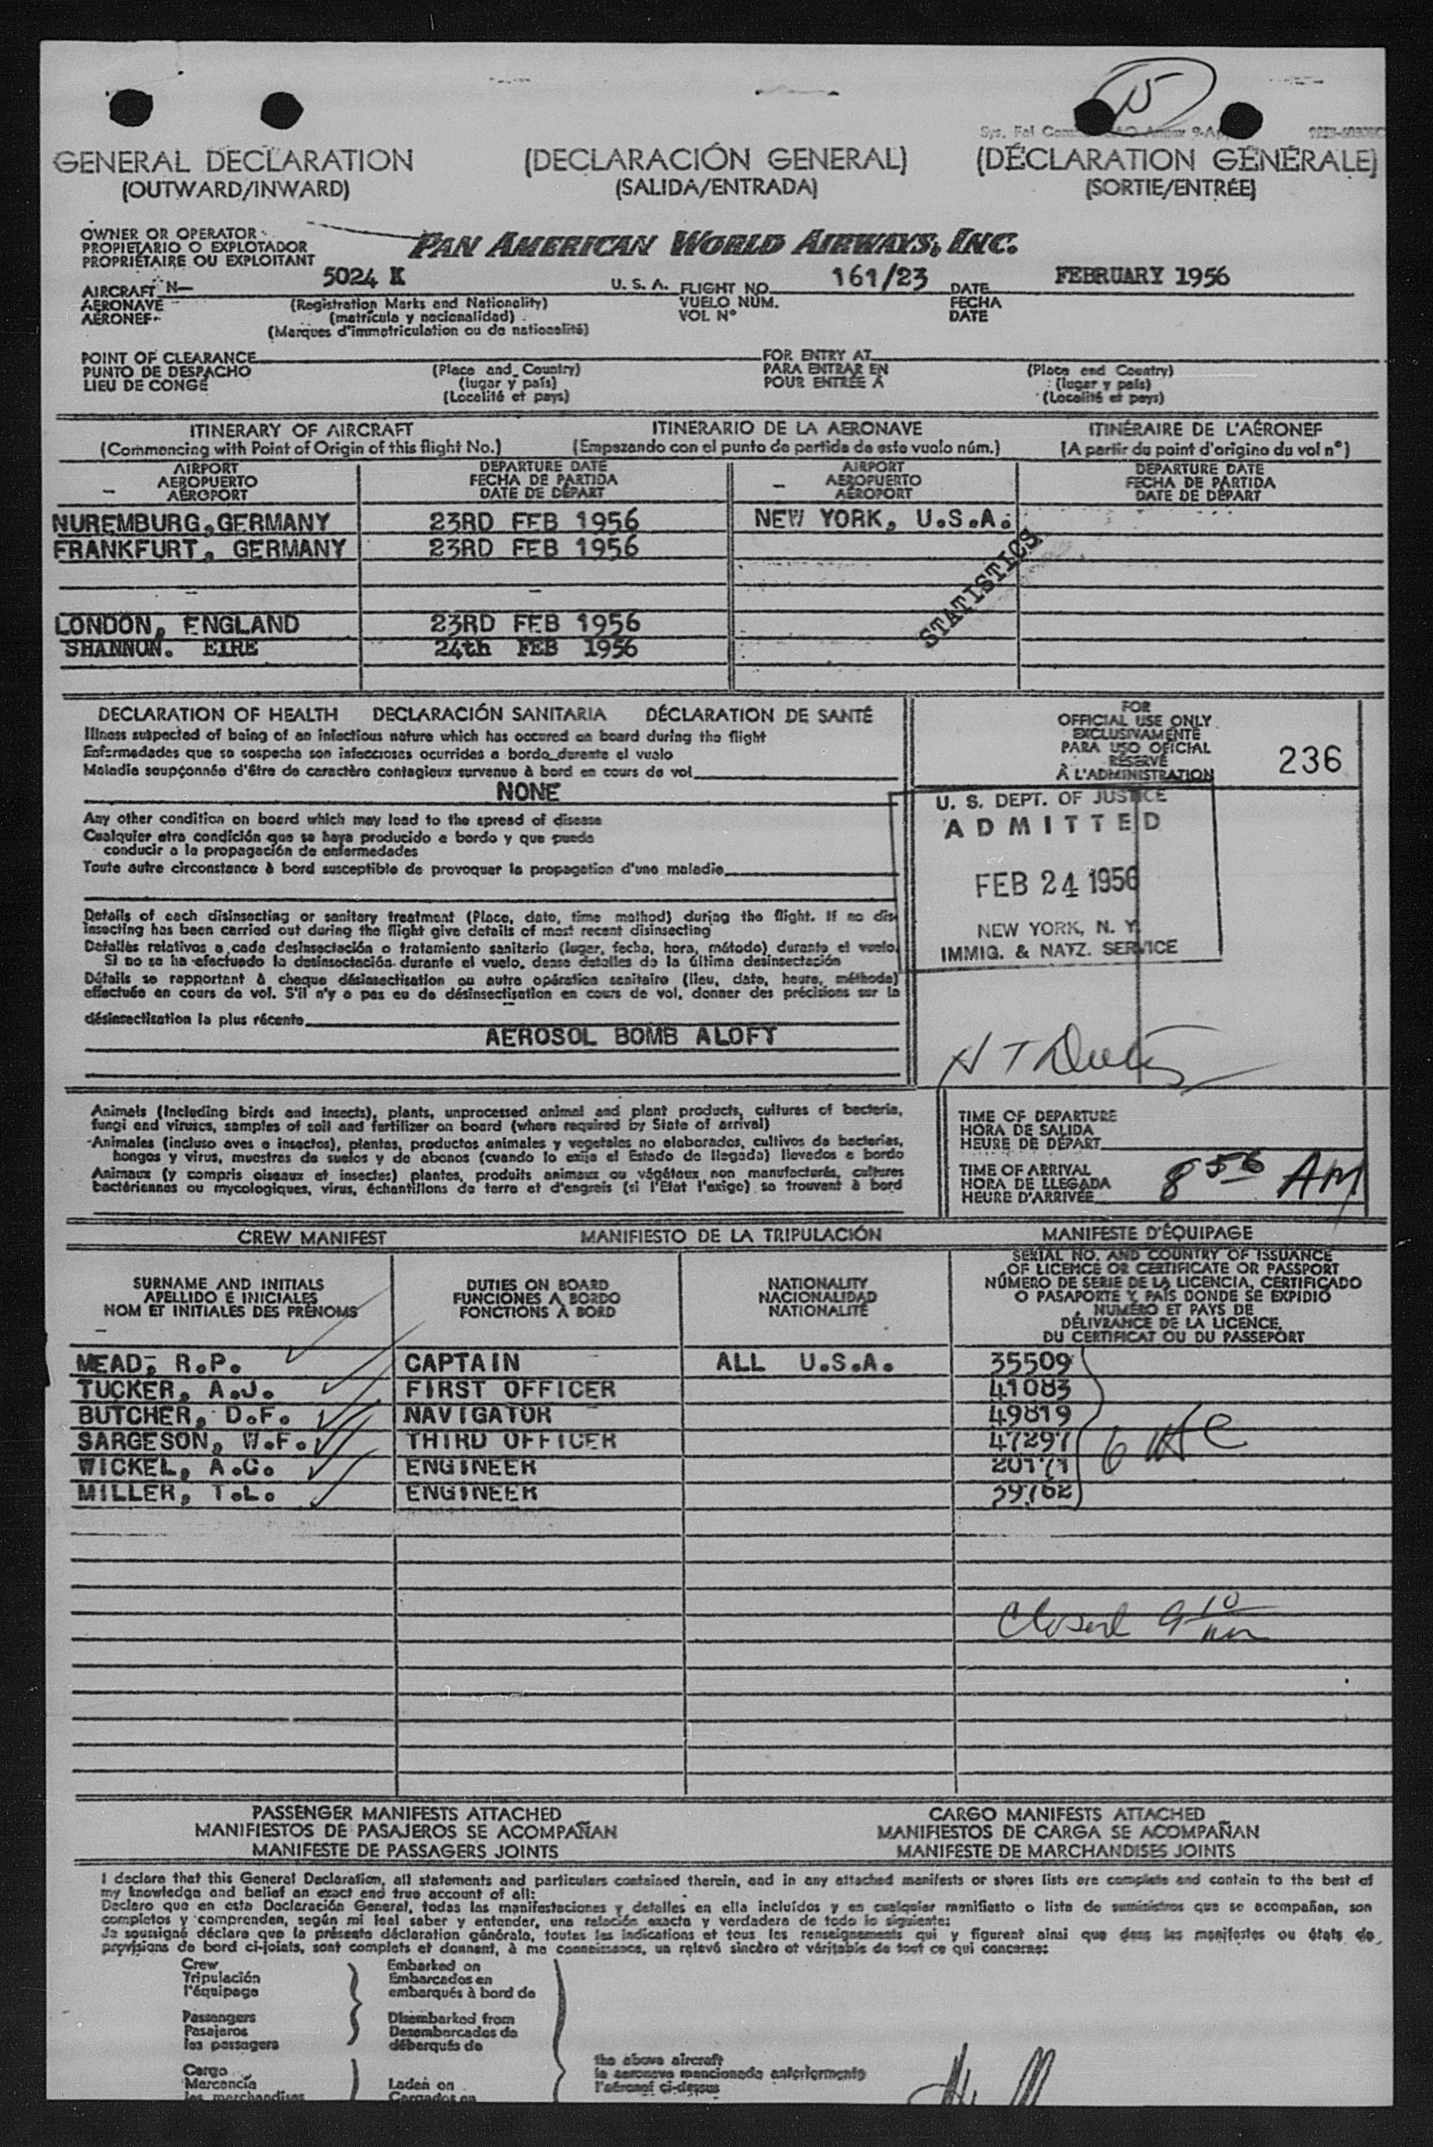 15
GENERAL DECLARATION (DECLARACIÓN GENERAL) (DÉCLARATION GÉNÉRALE)
(OUTWARD/INWARD) (SALIDA/ENTRADA) (SORTIE/ENTRÉE)
OWNER OR OPERATOR
PROPIETARIO O EXPLOTADOR
PROPRIÉTAIRE OU EXPLOITANT
PAN AMERICAN WORLD AIRWAYS, INC.
AIRCRAFT N— 5024 K U. S. A. FLIGHT NO. 161/23 DATE FEBRUARY 1956
AERONAVE (Registration Marks and Nationality) VUELO NÚM. FECHA
AÉRONEF (matrícula y nacionalidad) VOL Nº DATE
(Marques d'immatriculation ou de nationalité)
POINT OF CLEARANCE FOR ENTRY AT
PUNTO DE DESPACHO (Place and Country) PARA ENTRAR EN (Place and Country)
LIEU DE CONGÉ (lugar y país) POUR ENTRÉE A (lugar y país)
(Localité et pays) (Localité et pays)
ITINERARY OF AIRCRAFT ITINERARIO DE LA AERONAVE ITINÉRAIRE DE L'AÉRONEF
(Commencing with Point of Origin of this flight No.) (Empezando con el punto de partida de este vuelo núm.) (A partir du point d'origine du vol nº)
AIRPORT DEPARTURE DATE AIRPORT DEPARTURE DATE
AEROPUERTO FECHA DE PARTIDA AEROPUERTO FECHA DE PARTIDA
AÉROPORT DATE DE DÉPART AÉROPORT DATE DE DÉPART
NUREMBURG, GERMANY 23RD FEB 1956 NEW YORK, U.S.A.
FRANKFURT, GERMANY 23RD FEB 1956
STATISTICS
LONDON, ENGLAND 23RD FEB 1956
SHANNON. EIRE 24th FEB 1956
DECLARATION OF HEALTH DECLARACIÓN SANITARIA DÉCLARATION DE SANTÉ
Illness suspected of being of an infectious nature which has occured on board during the flight
Enfermedades que se sospecha son infecciosas ocurridas a bordo durante el vuelo
Maladie soupçonnée d'être de caractère contagieux survenue à bord en cours de vol
NONE
Any other condition on board which may lead to the spread of disease
Cualquier otra condición que se haya producido a bordo y que puede
conducir a la propagación de enfermedades
Toute autre circonstance à bord susceptible de provoquer la propagation d'une maladie
Details of each disinsecting or sanitary treatment (Place, date, time method) during the flight. If no dis-
insecting has been carried out during the flight give details of most recent disinsecting
Detalles relativos a cada desinsectación o tratamiento sanitario (lugar, fecha, hora, método) durante el vuelo.
Si no se ha efectuado la desinsectación durante el vuelo, dense detalles de la última desinsectación
Détails se rapportant à chaque désinsectisation ou autre opération sanitaire (lieu, date, heure, méthode)
effectuée en cours de vol. S'il n'y a pas eu de désinsectisation en cours de vol, donner des précisions sur la
désinsectisation la plus récente
AEROSOL BOMB ALOFT
FOR
OFFICIAL USE ONLY
EXCLUSIVAMENTE
PARA USO OFICIAL
RÉSERVÉ
À L'ADMINISTRATION
236
U. S. DEPT. OF JUSTICE
ADMITTED
FEB 24 1956
NEW YORK, N. Y.
IMMIG. & NATZ. SERVICE
Animals (Including birds and insects), plants, unprocessed animal and plant products, cultures of bacteria,
fungi and viruses, samples of soil and fertilizer on board (where required by State of arrival)
Animales (incluso aves e insectos), plantas, productos animales y vegetales no elaborados, cultivos de bacterias,
hongos y virus, muestras de suelos y de abonos (cuando lo exija el Estado de llegada) llevados a bordo
Animaux (y compris oiseaux et insectes) plantes, produits animaux ou végétaux non manufacturés, cultures
bactériennes ou mycologiques, virus, échantillons de terre et d'engrais (si l'Etat l'exige) se trouvant à bord
TIME OF DEPARTURE
HORA DE SALIDA
HEURE DE DÉPART
TIME OF ARRIVAL
HORA DE LLEGADA
HEURE D'ARRIVÉE
8 56 AM
CREW MANIFEST MANIFIESTO DE LA TRIPULACIÓN MANIFESTE D'ÉQUIPAGE
SURNAME AND INITIALS
APELLIDO E INICIALES
NOM ET INITIALES DES PRÉNOMS
DUTIES ON BOARD
FUNCIONES A BORDO
FONCTIONS À BORD
NATIONALITY
NACIONALIDAD
NATIONALITÉ
SERIAL NO. AND COUNTRY OF ISSUANCE
OF LICENCE OR CERTIFICATE OR PASSPORT
NÚMERO DE SERIE DE LA LICENCIA, CERTIFICADO
O PASAPORTE Y PAÍS DONDE SE EXPIDIÓ
NUMÉRO ET PAYS DE
DÉLIVRANCE DE LA LICENCE,
DU CERTIFICAT OU DU PASSEPORT
MEAD, R.P. CAPTAIN ALL U.S.A. 35509
TUCKER, A.J. FIRST OFFICER 41083
BUTCHER, D.F. NAVIGATOR 49819
SARGESON, W.F. THIRD OFFICER 47297
WICKEL, A.C. ENGINEER 20171
MILLER, T.L. ENGINEER 39762
Closed 9 10
PASSENGER MANIFESTS ATTACHED CARGO MANIFESTS ATTACHED
MANIFIESTOS DE PASAJEROS SE ACOMPAÑAN MANIFIESTOS DE CARGA SE ACOMPAÑAN
MANIFESTE DE PASSAGERS JOINTS MANIFESTE DE MARCHANDISES JOINTS
I declare that this General Declaration, all statements and particulars contained therein, and in any attached manifests or stores lists are complete and contain to the best of
my knowledge and belief an exact and true account of all:
Declaro que en esta Declaración General, todas las manifestaciones y detalles en ella incluídos y en cualquier manifiesto o lista de suministros que se acompañan, son
completos y comprenden, según mi leal saber y entender, una relación exacta y verdadera de todo lo siguiente:
Je soussigné déclare que la présente déclaration générale, toutes les indications et tous les renseignements qui y figurent ainsi que dans les manifestes ou états de
provisions de bord ci-joints, sont complets et donnent, à ma connaissance, un relevé sincère et véritable de tout ce qui concerne:
Crew Embarked on
Tripulación Embarcados en
l'équipage embarqués à bord de
Passengers Disembarked from
Pasajeros Desembarcados de
les passagers débarqués de
the above aircraft
la aeronave mencionada anteriormente
l'aéronef ci-dessus
Cargo
Mercancía Laden on
les marchandises Cargados en